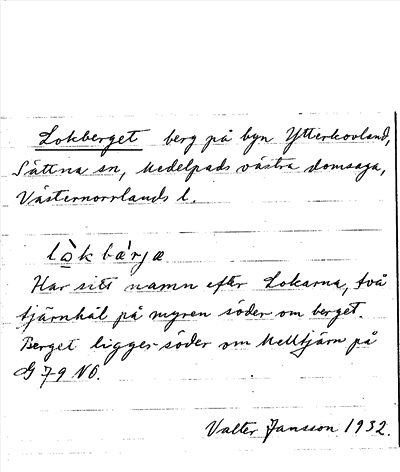 Lokberget berg på byn Ytterkovland,
Sättna sn, Medelpads västra domsaga,
Västernorrlands l.
lò̱k bàrja
Har sitt namn efter Lokarna, två
tjärnhål på myren söder om berget.
Berget ligger söder om Melltjärn på
G 79 NÖ.
Valter Jansson 1932.